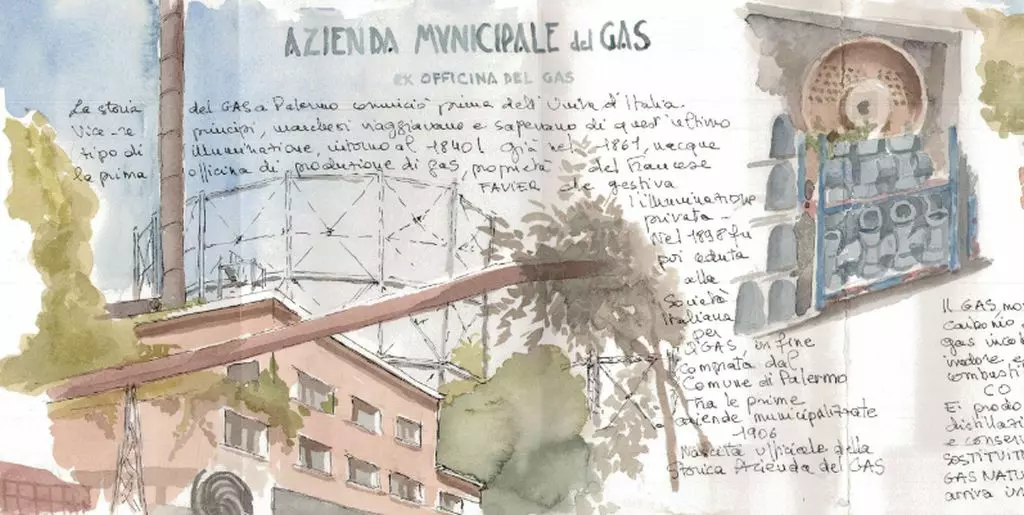 AZIENDA MVNICIPALE del GAS
EX OFFICINA DEL GAS
La storia del GAS a Palermo cominciò prima dell'Unità d'Italia.
Vice-re principi, marchesi viaggiavano e sapevano di quest'ultimo
tipo di illuminazione, intorno al 1840! già nel 1861, nacque
la prima officina di produzione di gas, proprietà del francese
FAVIER che gestiva
l'illuminazione
privata -
Nel 1898 fu
poi ceduta
alla
Società
Italiana
per
il GAS, in fine
comprata dal
Comune di Palermo
Fra le prime
aziende municipalizzate
- 1906
Nascita ufficiale della
storica Azienda del GAS
Il GAS
gas
CO
E'
e
SOSTITUIT
GAS NATU
arriva in